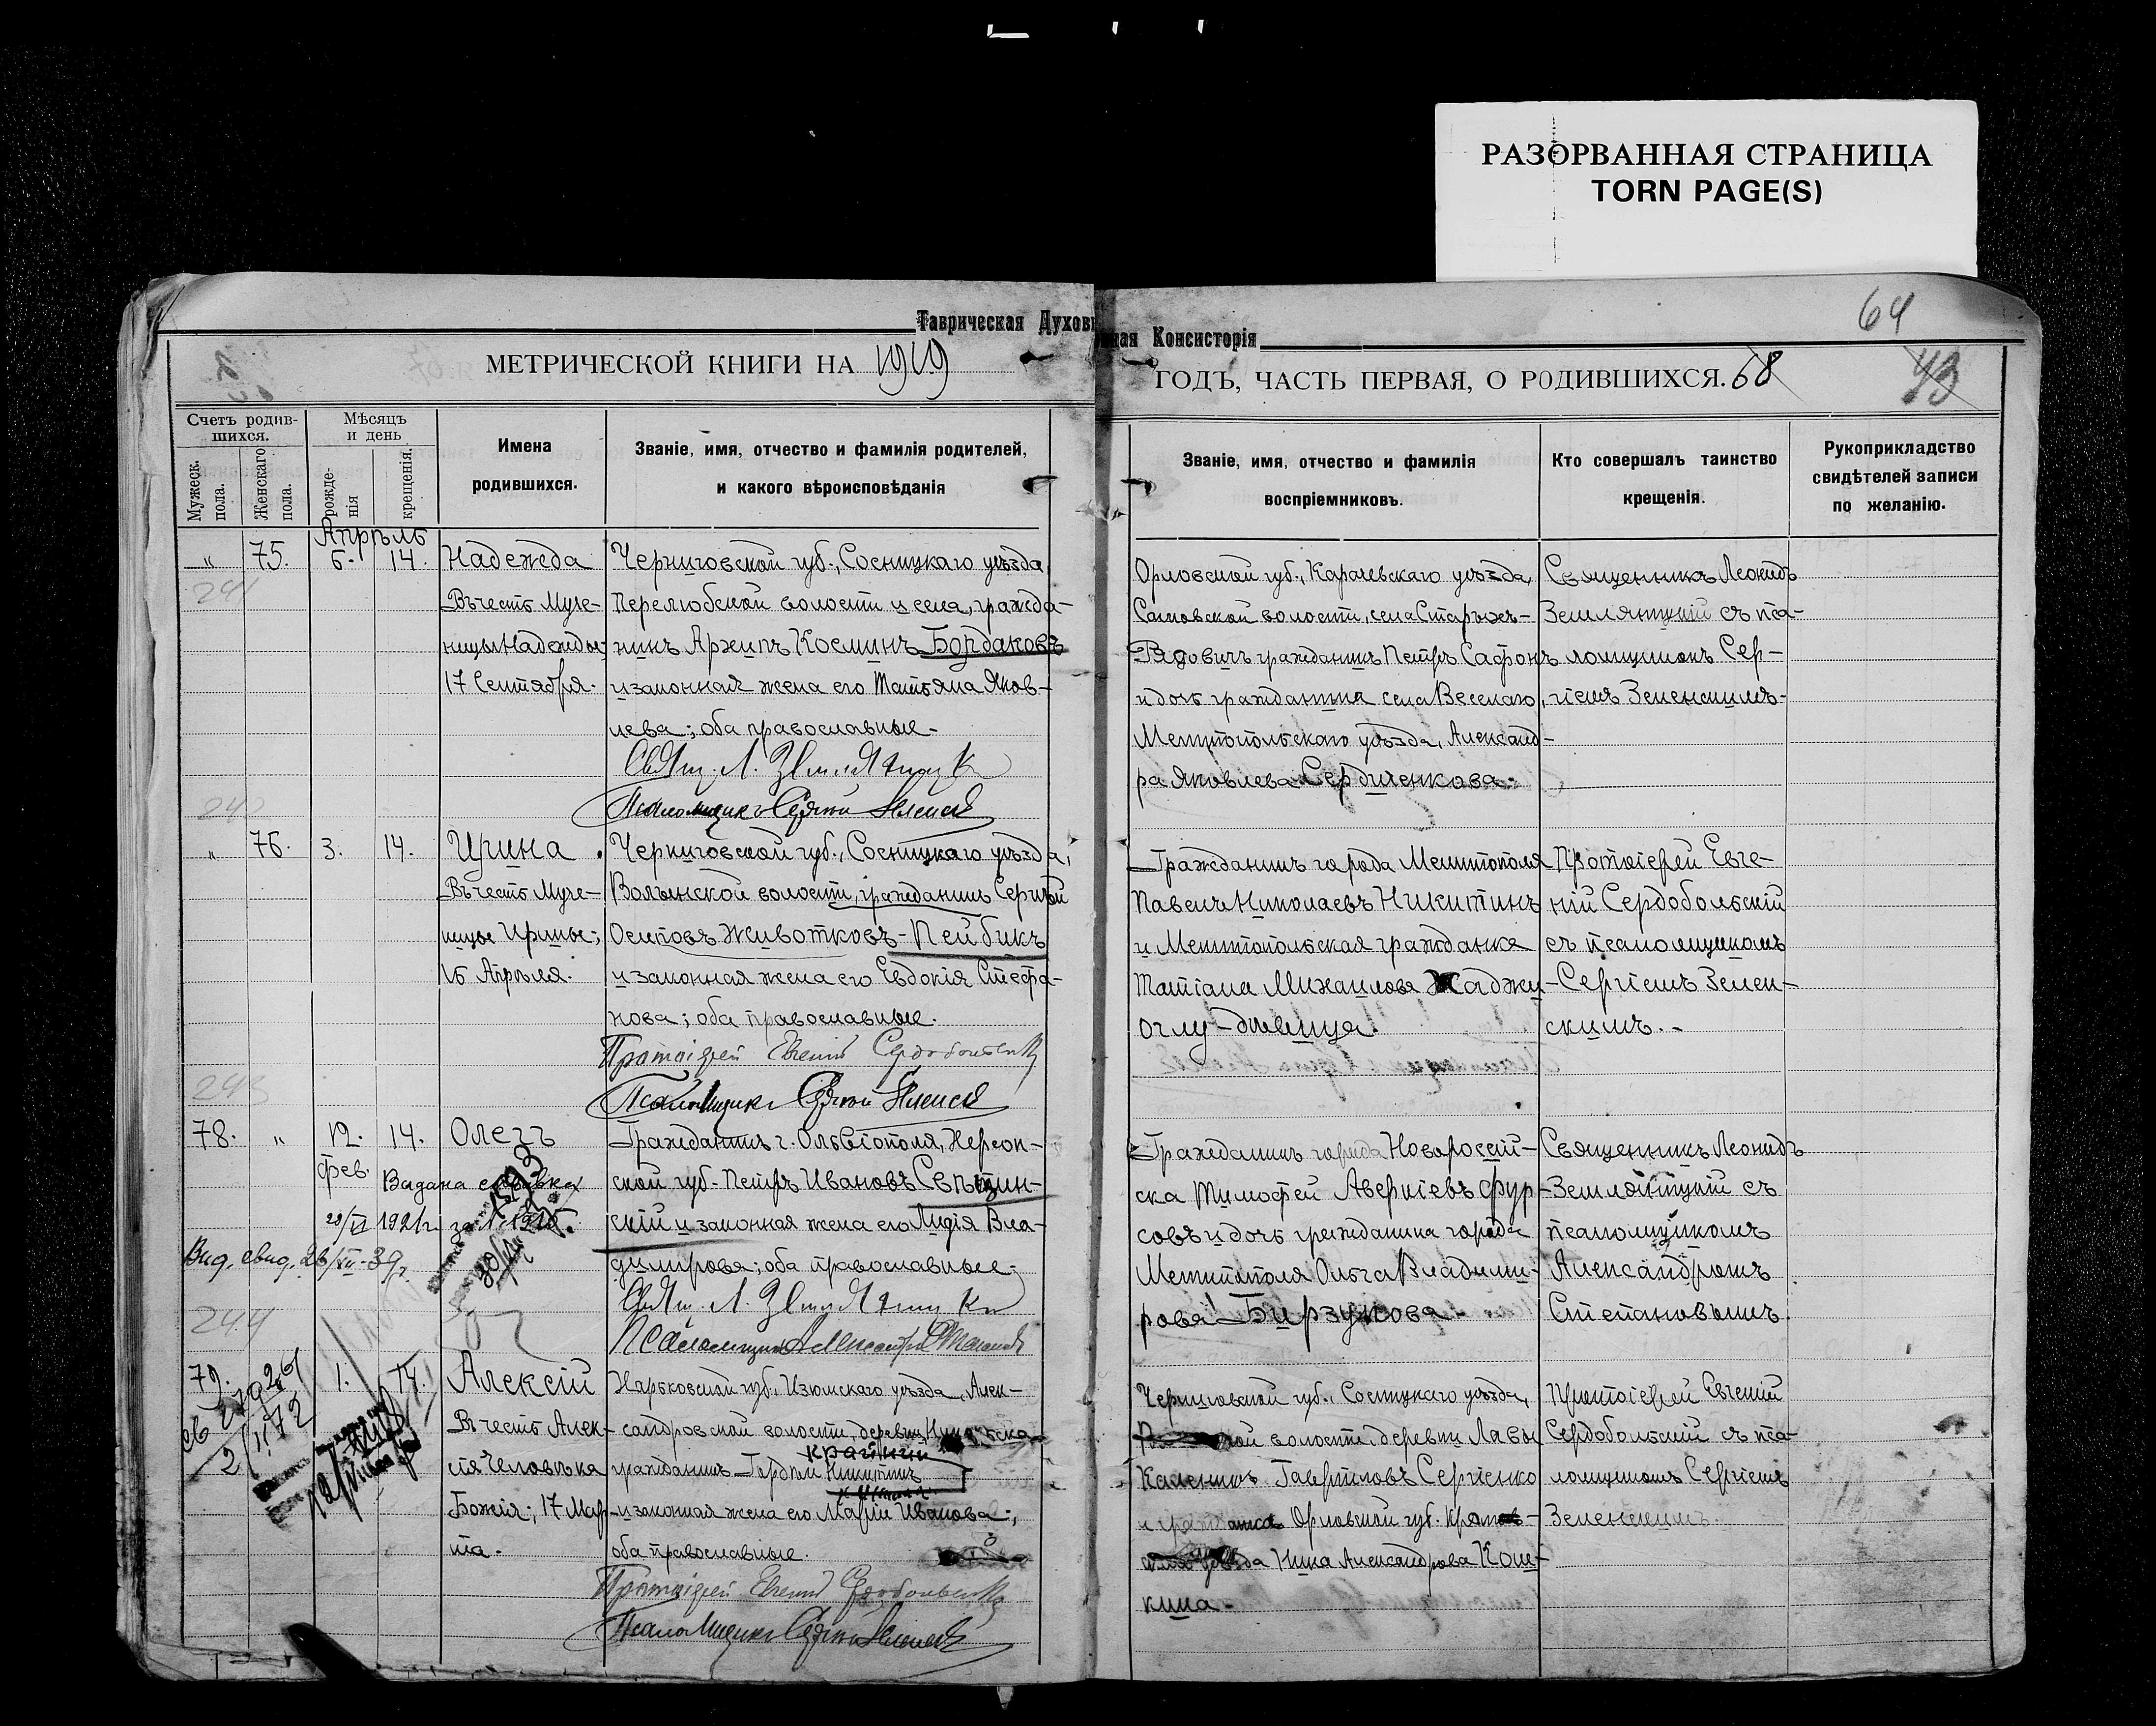 РАЗОРВАННАЯ СТРАНИЦА
TORN PAGE(S)
64
Таврическая Духовная Консисторія
МЕТРИЧЕСКОЙ КНИГИ НА 1919
ГОДЪ, ЧАСТЬ ПЕРВАЯ, О РОДИВШИХСЯ. 68
43
Счетъ родив-
шихся.
Мужеск.
пола.
Женскаго
пола.
Мѣсяцъ
и день
рожде-
нія
крещенія.
Имена
родившихся.
Званіе, имя, отчество и фамилія родителей,
и какого вѣроисповѣданія
Званіе, имя, отчество и фамилія
воспріемниковъ.
Кто совершалъ таинство
крещенія.
Рукоприкладство
свидѣтелей записи
по желанію.
Апрѣль
„ 75. 6. 14.
241
Надежда
Въ честь Муче-
ницы Надежды;
17 Сентября.
Черниговской губ., Сосницкаго уѣзда,
Перелюбской волости и села, гражда-
нинъ Архипъ Косминъ Бордаковъ
и законная жена его Татьяна Яков-
лева; оба православные.
Свящ. Л.
Псаломщикъ Сергій Зеленскій
Орловской губ., Карачевскаго уѣзда,
волости, села Старыхъ-
гражданинъ Петръ Сафонъ
и дочь гражданина села Веселаго,
Мелитопольскаго уѣзда, Александ-
ра Яковлева Сердиченкова.
Священникъ Леонидъ
съ пса-
ломщикомъ Сер-
гіемъ Зеленскимъ.
242
„ 76. 3. 14.
Ирина
Въ честь Муче-
ницы Ирины;
16 Апрѣля.
Черниговской губ., Сосницкаго уѣзда,
Волынской волости, гражданинъ Сергѣй
Осиповъ Животковъ-Пейбикъ
и законная жена его Евдокія Стефа-
нова; оба православные.
Протоіерей Евгеній Сердобольскій
Псаломщикъ Сергій Зеленскій
Гражданинъ города Мелитополя
Павелъ Николаевъ Никитинъ
и Мелитопольская гражданка
Татіана Михаилова Хаджи-
оглу-дѣвица.
Протоіерей Евге-
ній Сердобольскій
съ псаломщикомъ
Сергіемъ Зелен-
скимъ.
243
78. „ 12. 14.
фев.
Олегъ
Выдана справка
20/VI 1921 г.
Выд. свид. 26/XII-39 г.
Гражданинъ г. Ольвіополя, Херсон-
ской губ. Петръ Ивановъ
скій и законная жена его Лидія Вла-
димірова; оба православные.
Свящ. Л.
Псаломщикъ Александръ Степановъ
Гражданинъ города Новороссій-
ска Тимофей Аверкіевъ Фур-
совъ и дочь гражданина города
Мелитополя Ольга Владими-
рова Бирзукова.
Священникъ Леонидъ
съ
псаломщикомъ
Александромъ
Степановымъ.
244
79. 1. 14.
Алексій
Въ честь Алек-
сія Человѣка
Божія; 17 Мар-
та.
Харьковской губ., Изюмскаго уѣзда, Алек-
сандровской волости, деревни
гражданинъ Гордѣй Никитинъ
и законная жена его Марія Иванова;
оба православные.
Протоіерей Евгеній Сердобольскій
Псаломщикъ Сергій Зеленскій
Черниговской губ., Сосницкаго уѣзда,
волости, деревни Лавы
Гавриловъ Сергіенко
Орловской губ.
уѣзда Нина Александрова Кош-
кина.
Протоіерей Евгеній
Сердобольскій съ пса-
ломщикомъ Сергіемъ
Зеленскимъ.